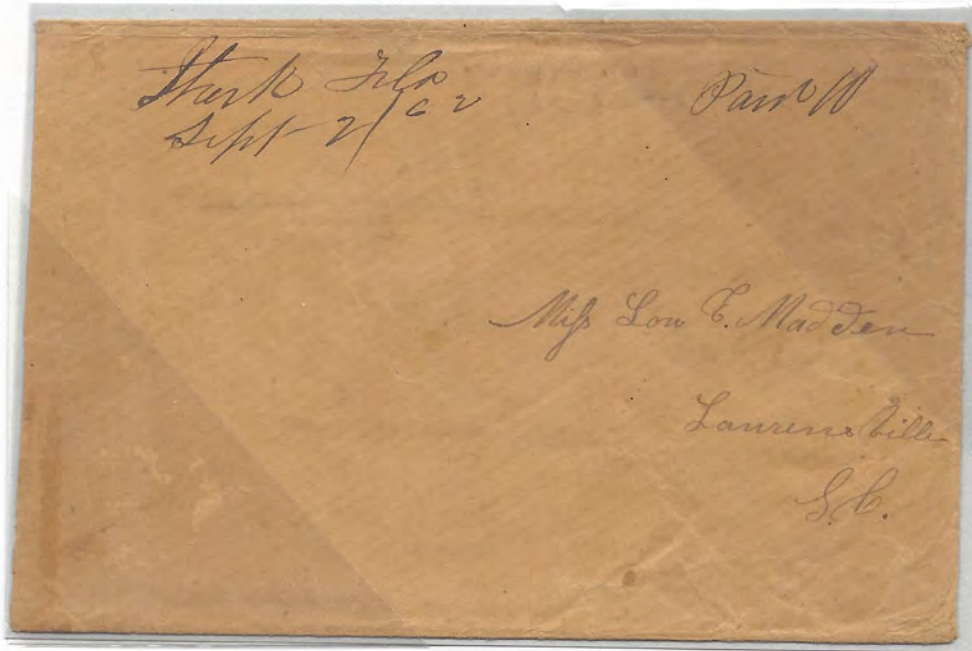 Stark Fla
Sept 2/62
Paid 10
Miſs Lou E. Madden
Laurensville
S.C.